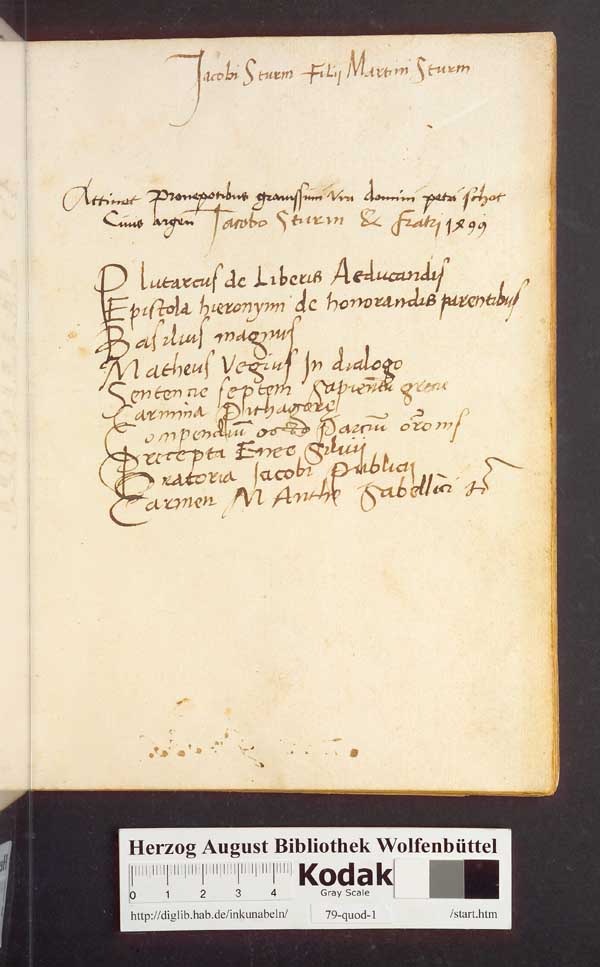 Jacobi Sturm Filij Martini Sturm
Attinet Pronepotibus grauissimi viri domini petri schot
Ciuis argeñ Jacobo Sturm & Fratri 1499
Plutarcus de Liberis Aeducandis
Epistola hieronymi de honorandis parentibus
Basilius magnus
Matheus Vegius In dialogo
Sentencie septem Sapientũ grecie
Carmina Pithagore
Compendiũ octo Parciũ or̃onis
Precepta Enee Siluij
Oratoria Jacobi Publicij
Carmen M Anthe Sabellici
Herzog August Bibliothek Wolfenbüttel
0 1 2 3 4
Kodak
Gray Scale
http://diglib.hab.de/inkunabeln/ 79-quod-1 /start.htm